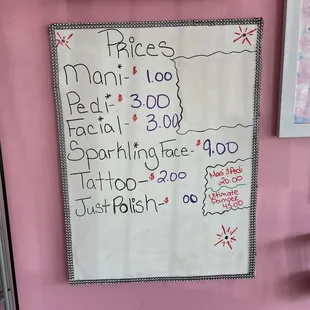 Prices
Mani- $ 1.00
Pedi- $ 3.00
Facial- $ 3.00
Sparkling Face- $ 9.00
Tattoo- $ 2.00
Just Polish- $ 00
Mani & Pedi
20.00
Ultimate
Pamper
45.00